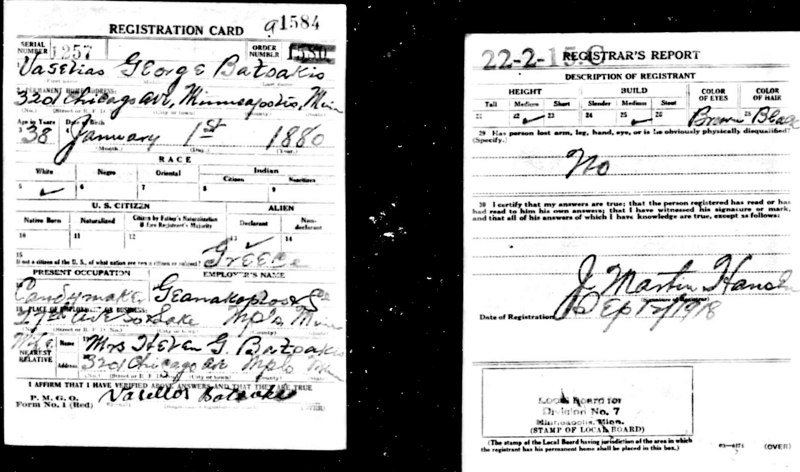 REGISTRATION CARD
91584
SERIAL NUMBER 1257
ORDER NUMBER 1580
Vaselias George Batsakis
PERMANENT HOME ADDRESS:
3201 Chicago Ave, Minneapolis, Minn
Age in Years
Date of Birth
38 January 1st 1880
(Month.) (Day.) (Year.)
RACE
White Negro Oriental Indian
Citizen Noncitizen
5 ✓ 6 7 8 9
U. S. CITIZEN ALIEN
Native Born Naturalized Citizen by Father's Naturalization Before Registrant's Majority Declarant Non-declarant
10 11 12 13 ✓ 14
15
If not a citizen of the U. S., of what nation are you a citizen or subject? Greece
PRESENT OCCUPATION EMPLOYER'S NAME
Candymaker
PLACE OF EMPLOYMENT OR BUSINESS:
Ave So Lake Mpls Minn
Wife
NEAREST RELATIVE
Name Mrs Helen G. Batsakis
Address 3201 Chicago Av Mpls Min
I AFFIRM THAT I HAVE VERIFIED ABOVE ANSWERS AND THAT THEY ARE TRUE
P. M. G. O.
Form No. 1 (Red)
Batsakis
(OVER)
22-2-15 C
REGISTRAR'S REPORT
DESCRIPTION OF REGISTRANT
HEIGHT BUILD COLOR OF EYES COLOR OF HAIR
Tall Medium Short Slender Medium Stout
21 22 ✓ 23 24 25 ✓ 26 27 Brown 28 Black
29 Has person lost arm, leg, hand, eye, or is he obviously physically disqualified?
(Specify.)
No
30 I certify that my answers are true; that the person registered has read or has
had read to him his own answers; that I have witnessed his signature or mark,
and that all of his answers of which I have knowledge are true, except as follows:
J. Martin Hansen
(Signature of Registrar)
Date of Registration Sep 12/1918
Local Board for
Division No. 7
Minneapolis, Minn.
(STAMP OF LOCAL BOARD)
(The stamp of the Local Board having jurisdiction of the area in which
the registrant has his permanent home shall be placed in this box.)
03—6171 (OVER)